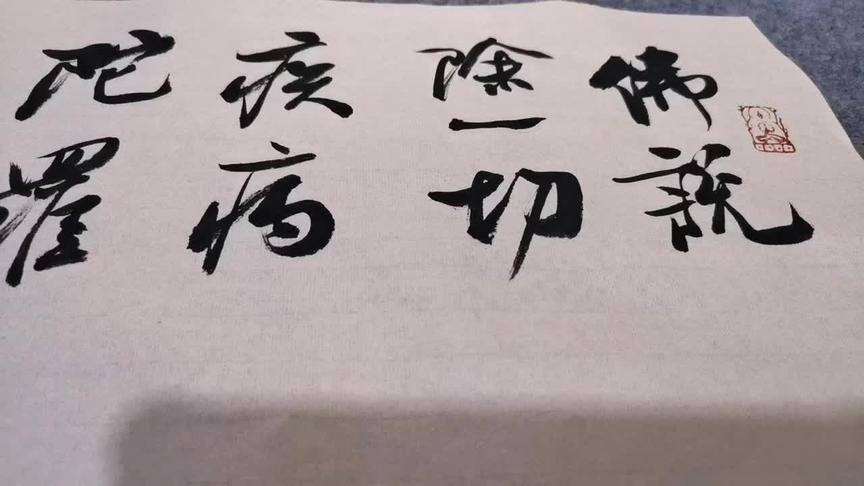 佛說
除一切
疾病
陀羅